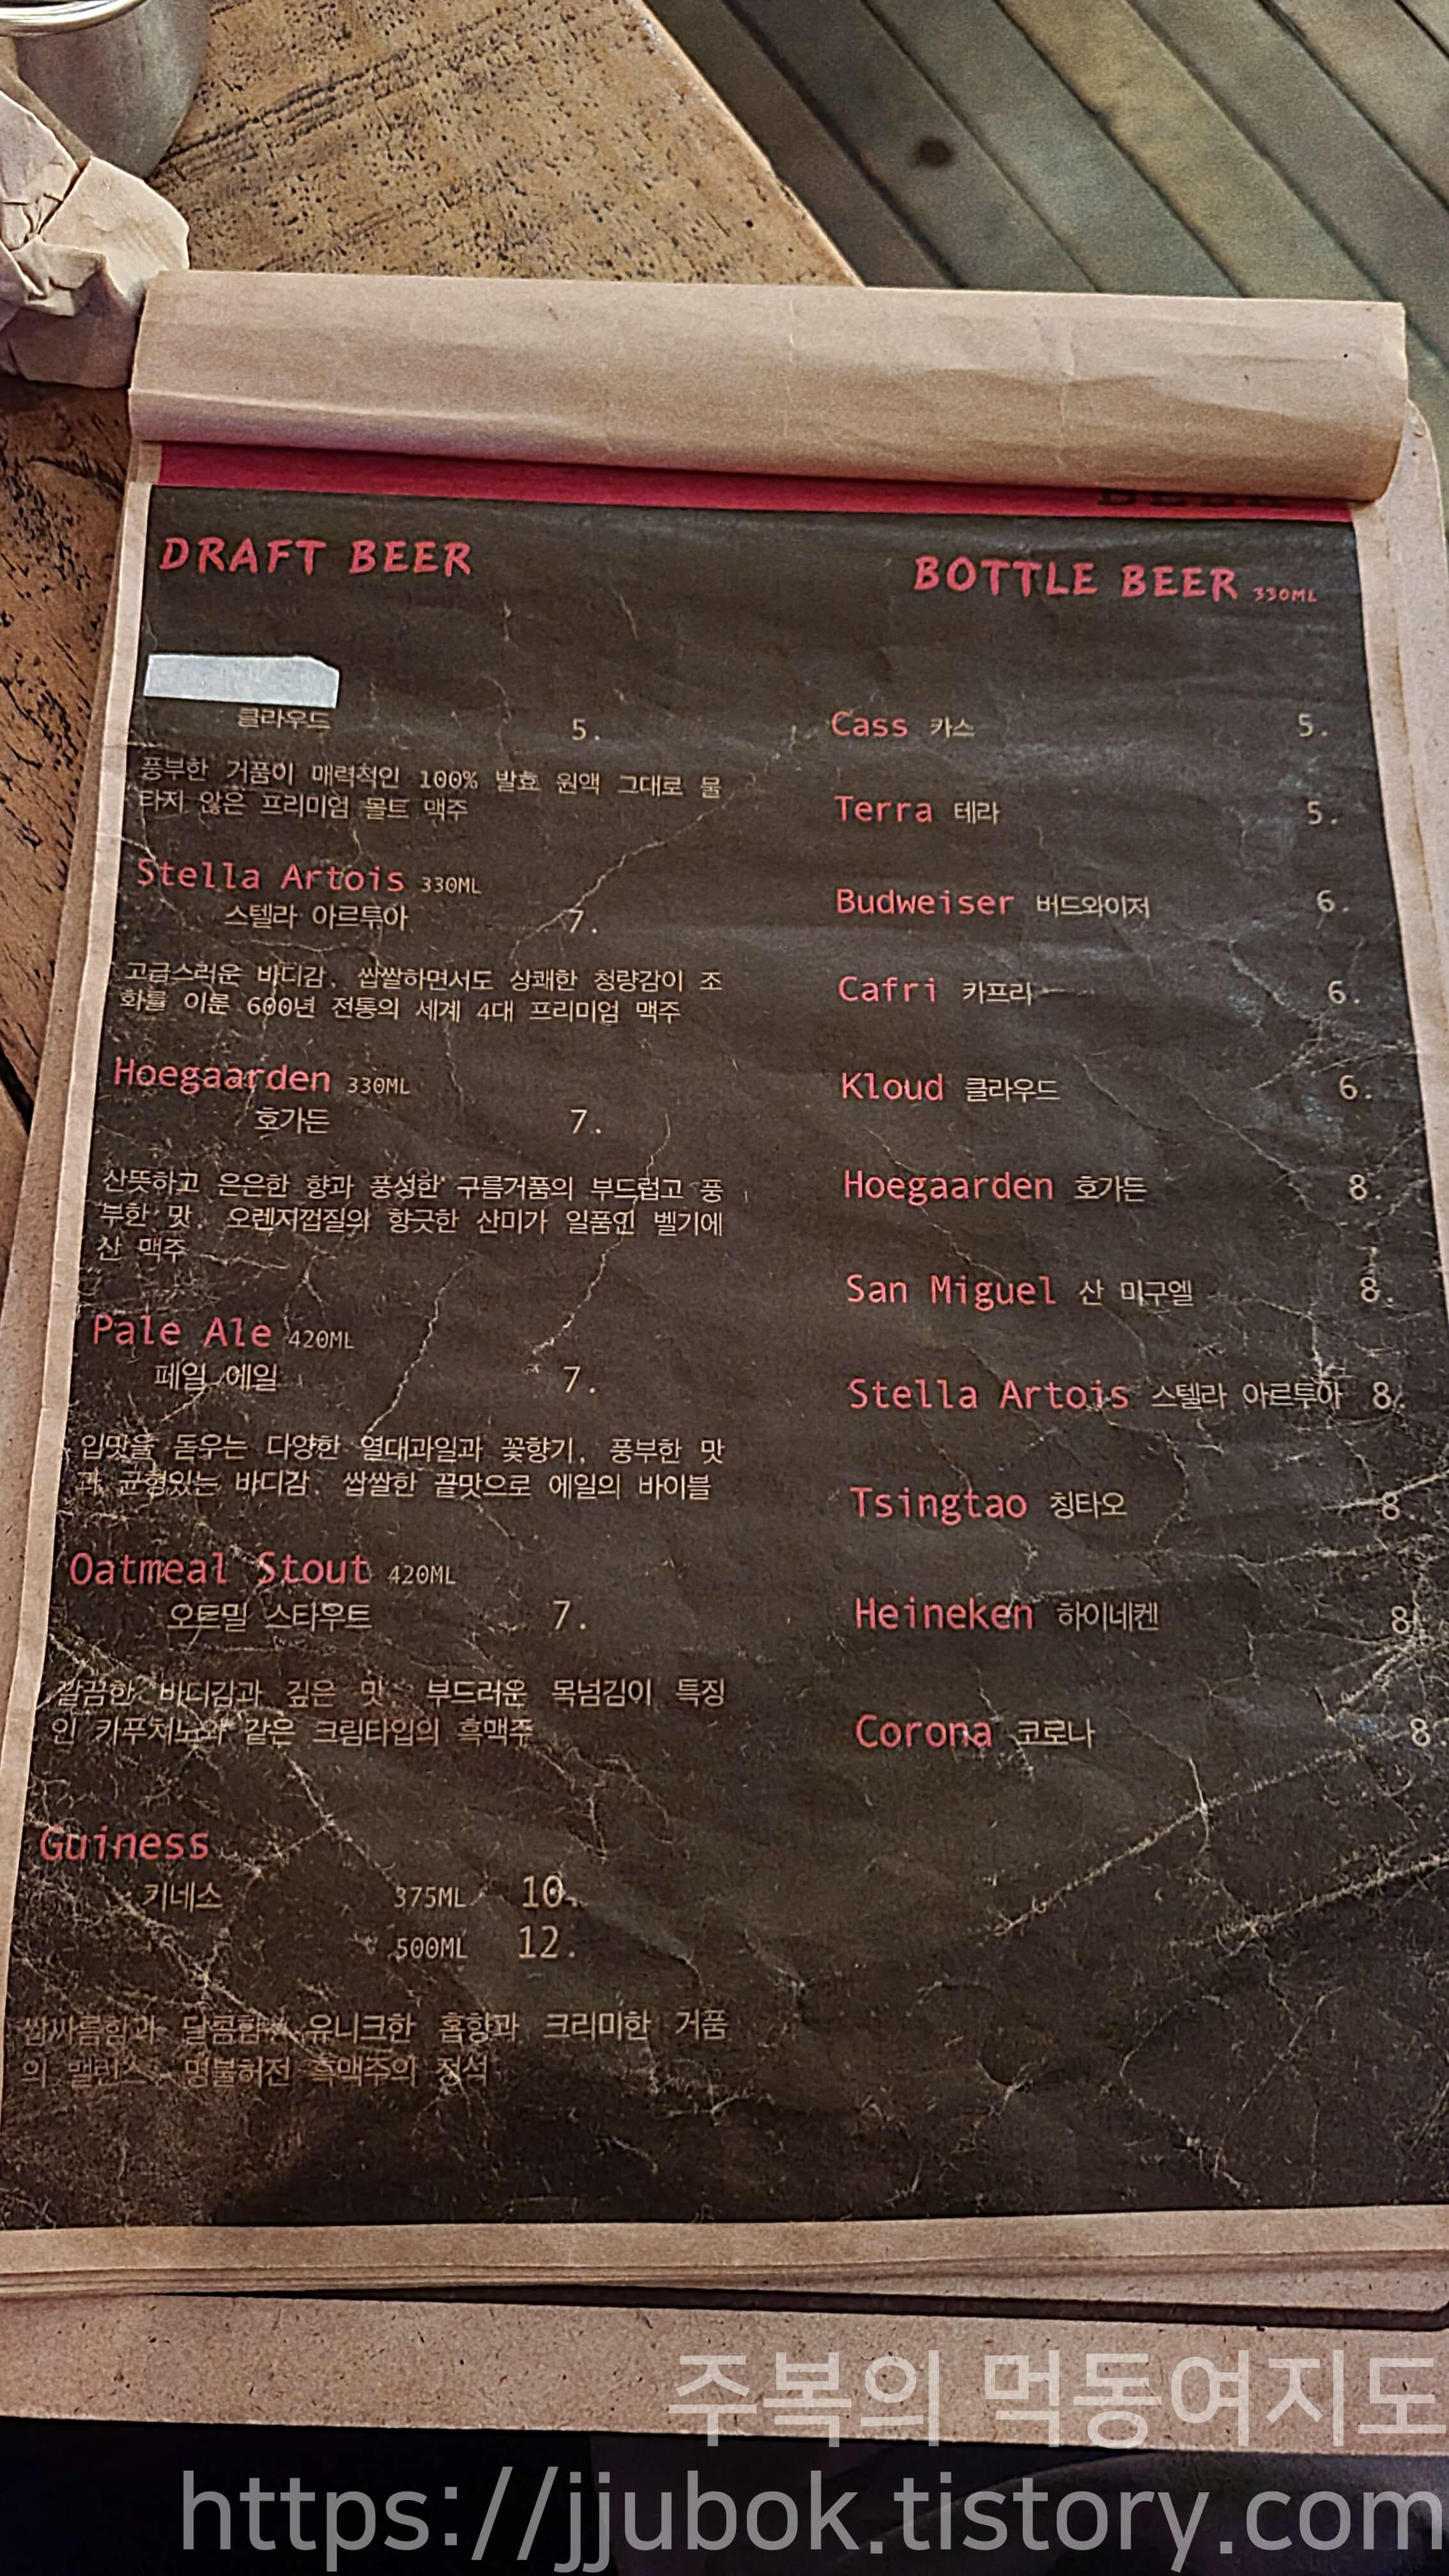 DRAFT BEER
클라우드 5.
풍부한 거품이 매력적인 100% 발효 원액 그대로 물
타지 않은 프리미엄 몰트 맥주
Stella Artois 330ML
스텔라 아르투아 7.
고급스러운 바디감, 쌉쌀하면서도 상쾌한 청량감이 조
화를 이룬 600년 전통의 세계 4대 프리미엄 맥주
Hoegaarden 330ML
호가든 7.
산뜻하고 은은한 향과 풍성한 구름거품의 부드럽고 풍
부한 맛, 오렌지껍질의 향긋한 산미가 일품인 벨기에
산 맥주
Pale Ale 420ML
페일 에일 7.
입맛을 돋우는 다양한 열대과일과 꽃향기, 풍부한 맛
과 균형있는 바디감, 쌉쌀한 끝맛으로 에일의 바이블
Oatmeal Stout 420ML
오트밀 스타우트 7.
깔끔한 바디감과 깊은 맛, 부드러운 목넘김이 특징
인 카푸치노와 같은 크림타입의 흑맥주
Guiness
키네스 375ML 10.
500ML 12.
쌉싸름함과 달콤함, 유니크한 홉향과 크리미한 거품
의 밸런스, 명불허전 흑맥주의 정석
BOTTLE BEER 330ML
Cass 카스 5.
Terra 테라 5.
Budweiser 버드와이저 6.
Cafri 카프리 6.
Kloud 클라우드 6.
Hoegaarden 호가든 8.
San Miguel 산 미구엘 8.
Stella Artois 스텔라 아르투아 8.
Tsingtao 칭타오 8.
Heineken 하이네켄 8.
Corona 코로나 8.
주복의 먹동여지도
https://jjubok.tistory.com